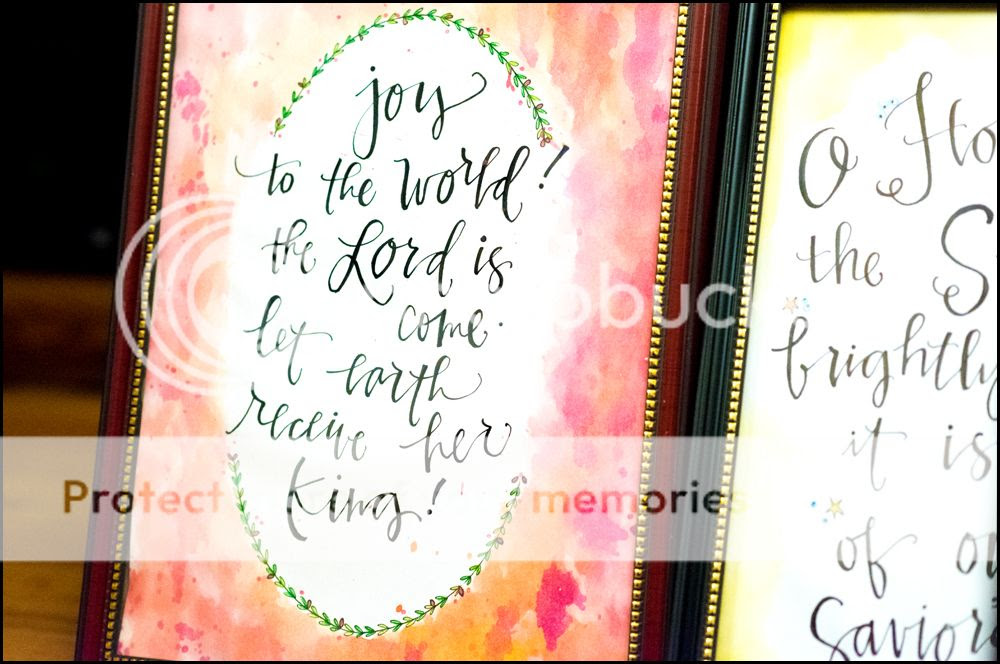 joy
to the World!
the Lord is
come.
let earth
receive her
King!
O Ho
the S
brightly
it is
of ou
Savior
Protect memories